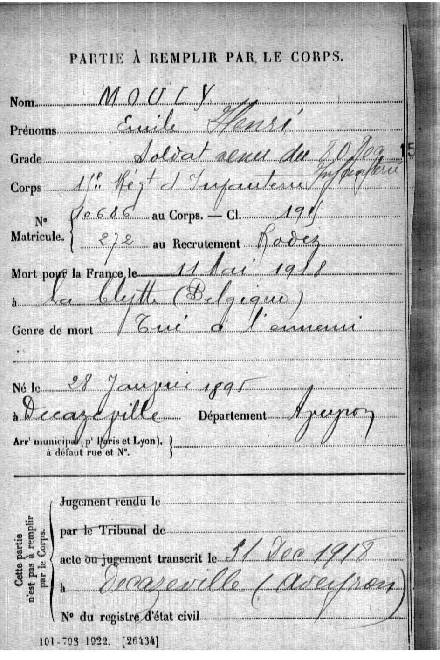 PARTIE À REMPLIR PAR LE CORPS.
Nom MOULY
Prénoms Emile Henri
Grade Soldat venu du
Corps Rég^t d'Infanterie Infanterie
N° Matricule. { 10616 au Corps. — Cl. 1915
272 au Recrutement Rodez
Mort pour la France le 11 Mai 1918
à La Clytte (Belgique)
Genre de mort Tué à l'ennemi
Né le 28 Janvier 1895
à Decazeville Département Aveyron
Arr^t municipal (p^r Paris et Lyon),
à défaut rue et N°.
Cette partie n'est pas à remplir par le Corps.
Jugement rendu le
par le Tribunal de
acte ou jugement transcrit le 31 Dec 1918
à Decazeville (Aveyron)
N° du registre d'état civil
101-708 1922. [26434]